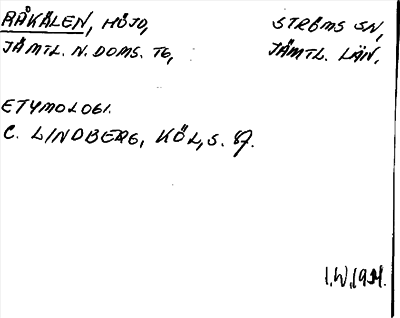 RÅKÅLEN, HÖJD, STRÖMS SN,
JÄMTL. N. DOMS. TG, JÄMTL. LÄN.
ETYMOLOGI.
C. LINDBERG, KÖL, S. 87.
I.W.